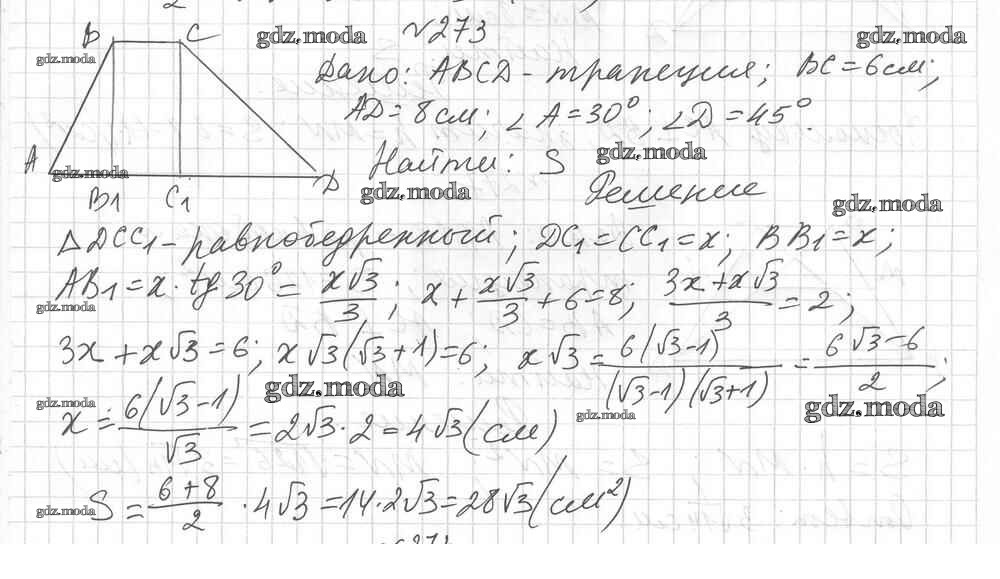 №273
B C gdz.moda gdz.moda
gdz.moda Дано: ABCD - трапеция; BC = 6 см;
AD = 8 см; ∠A = 30°; ∠D = 45°.
A gdz.moda D Найти: S gdz.moda
B1 C1 gdz.moda Решение gdz.moda
△DCC1 - равнобедренный; DC1 = CC1 = x; BB1 = x;
AB1 = x · tg 30° = x√3/3; x + x√3/3 + 6 = 8; (3x + x√3)/3 = 2;
gdz.moda
3x + x√3 = 6; x√3(√3 + 1) = 6; x√3 = 6(√3 - 1)/((√3 - 1)(√3 + 1)) = (6√3 - 6)/2;
gdz.moda gdz.moda gdz.moda gdz.moda
x = 6(√3 - 1)/√3 = 2√3 · 2 = 4√3 (см)
gdz.moda S = (6 + 8)/2 · 4√3 = 14 · 2√3 = 28√3 (см²)